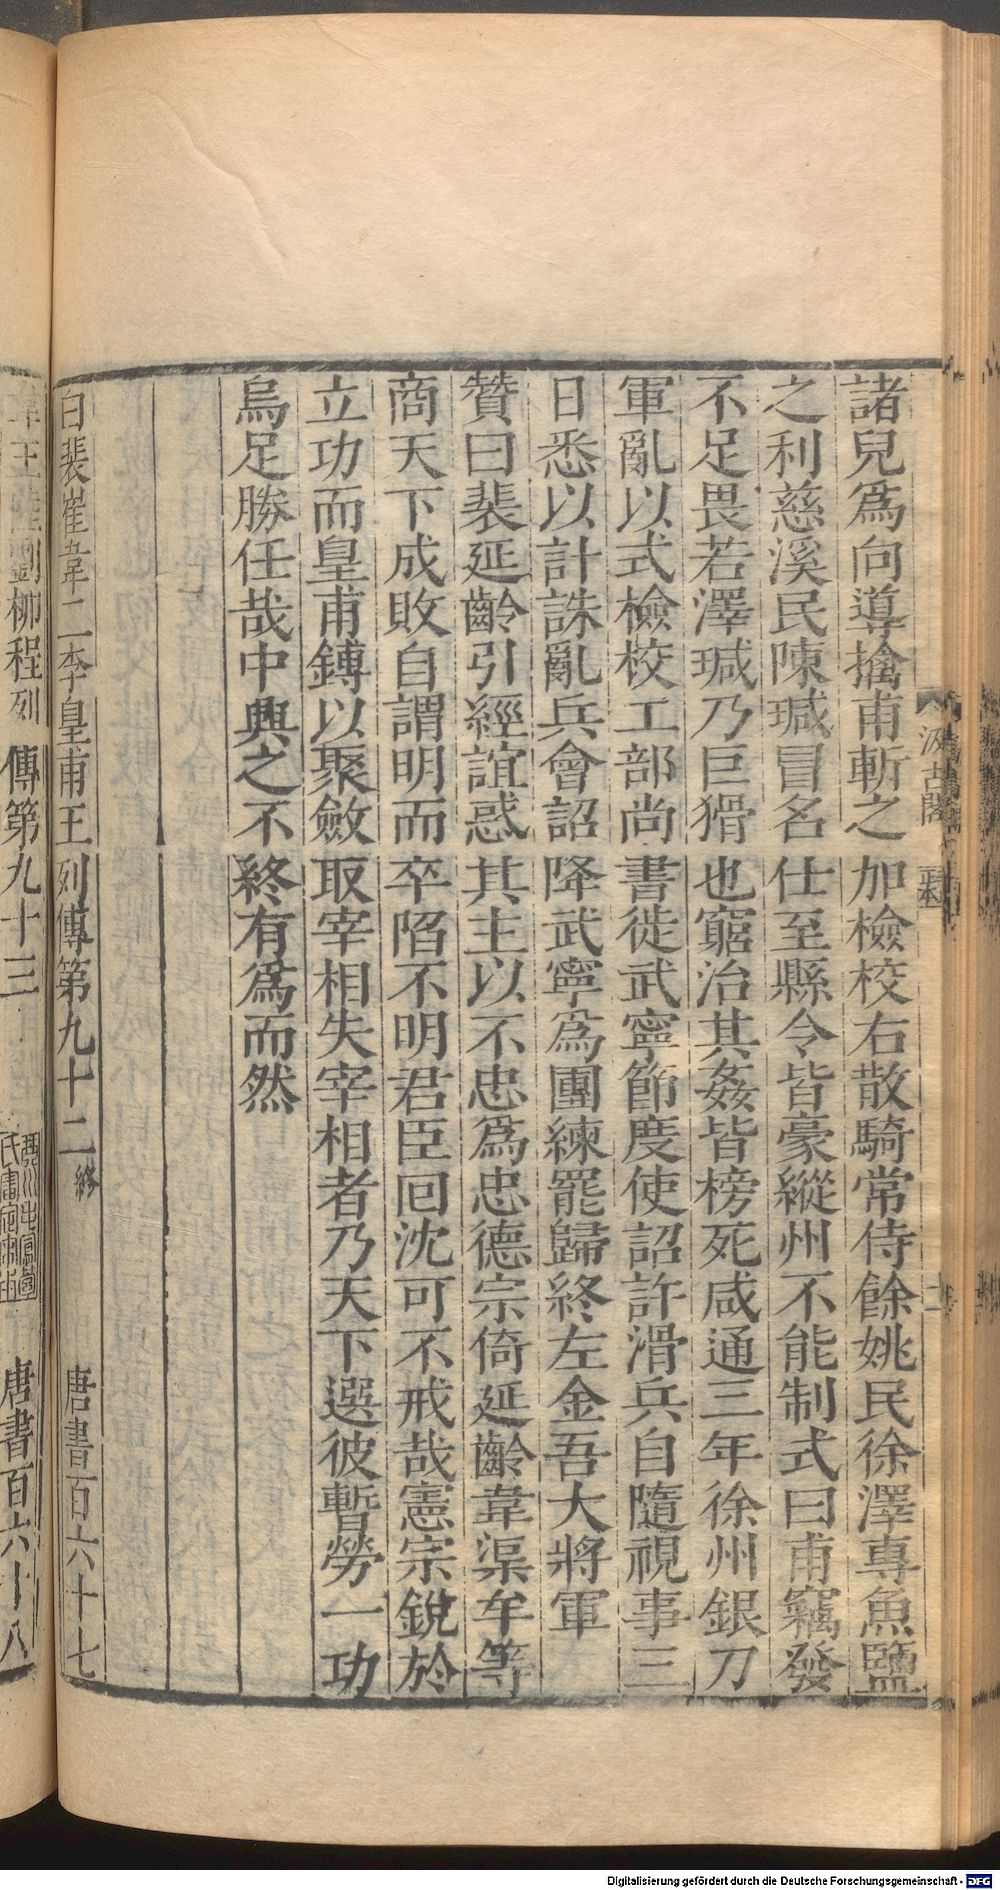 諸兒爲向導擒甫斬之加檢校右散騎常侍餘姚民徐澤專魚鹽
之利慈溪民陳瑊冒名仕至縣令皆豪縱州不能制式曰甫竊發
不足畏若澤瑊乃巨猾也窮治其姦皆榜死咸通三年徐州銀刀
軍亂以式檢校工部尚書徙武寧節度使詔許滑兵自隨視事三
日悉以計誅亂兵會詔降武寧爲團練罷歸終左金吾大將軍
贊曰裴延齡引經誼惑其主以不忠爲忠德宗倚延齡韋渠牟等
商天下成敗自謂明而卒陷不明君臣回沈可不戒哉憲宗銳於
立功而皇甫鎛以聚斂取宰相失宰相者乃天下選彼暫勞一功
烏足勝任哉中興之不終有爲而然
白裴崔韋二李皇甫王列傳第九十二終 唐書百六十七
韋王陸劉柳程列傳第九十三 唐書百六十八
汲古閣